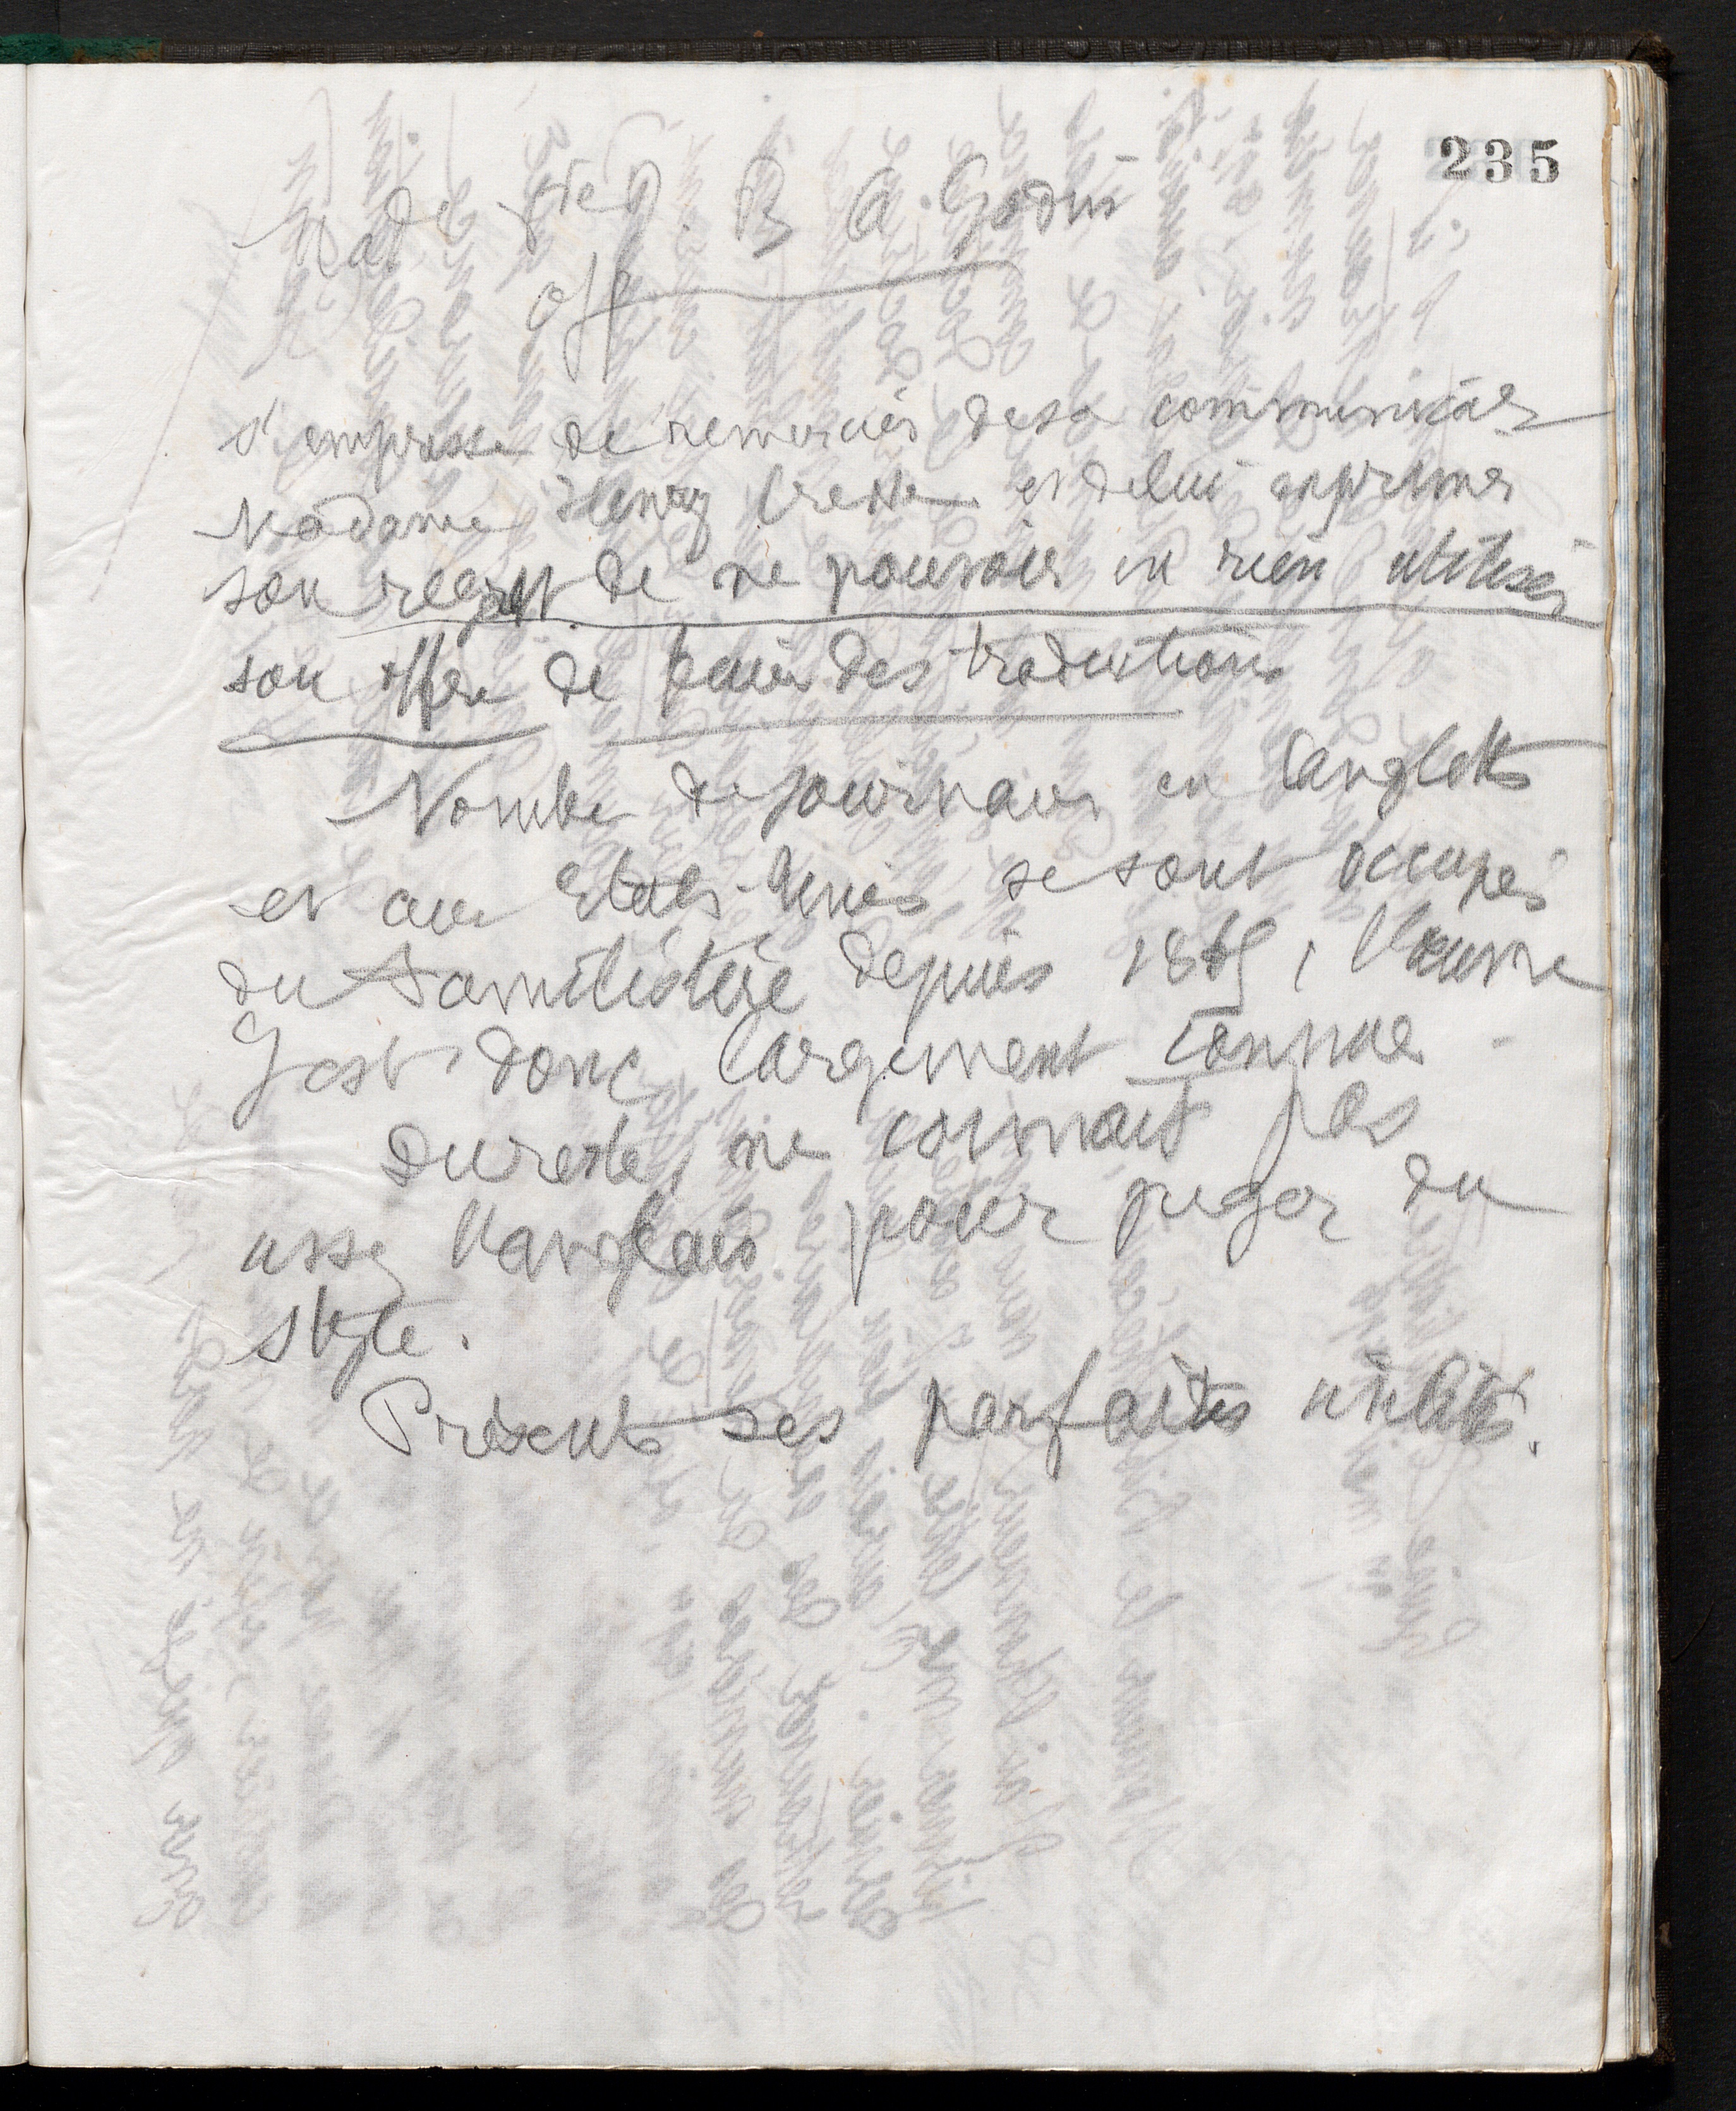 235
Mad. Vve J. B. A. Godin
off
s'empresse de remercier de sa communication
Madame Henry et de lui exprimer
son regret de ne pouvoir en rien utiliser
son offre de faire des traductions
Nombre de journaux en Anglet
et aux Etats-Unis se sont occupés
du Familistère depuis 1865, l'œuvre
y est donc largement connue
du reste, ne connait pas
assez l'anglais pour juger du
style.
Présente ses parfaites civilités.